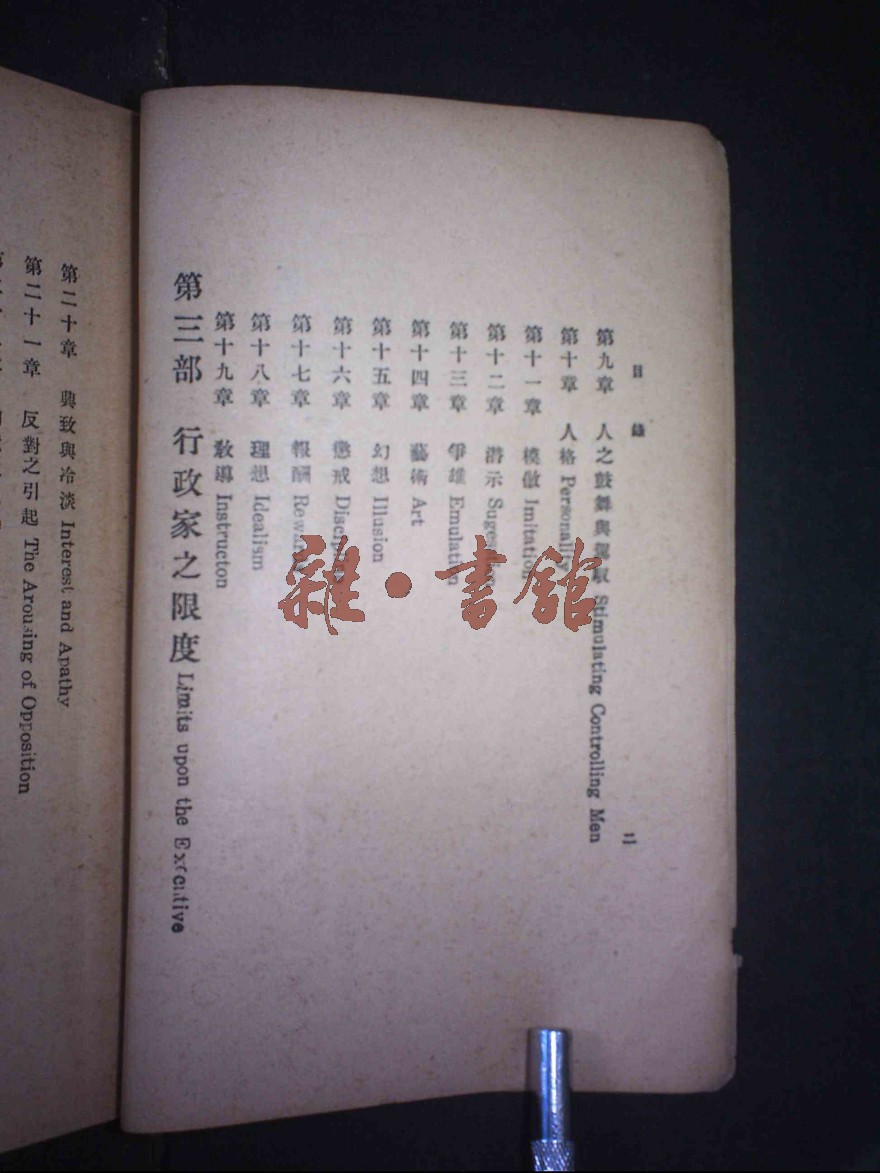 目錄
二
第九章 人之鼓舞與駕馭 Stimulating Controlling Men
第十章 人格 Personality
第十一章 模倣 Imitation
第十二章 潛示
第十三章 爭雄 Emulation
第十四章 藝術 Art
第十五章 幻想 Illusion
第十六章 懲戒
第十七章 報酬
第十八章 理想 Idealism
第十九章 教導 Instructon
第三部 行政家之限度 Limits upon the Executive
第二十章 興致與冷淡 Interest and Apathy
第二十一章 反對之引起 The Arousing of Opposition
雜·書館